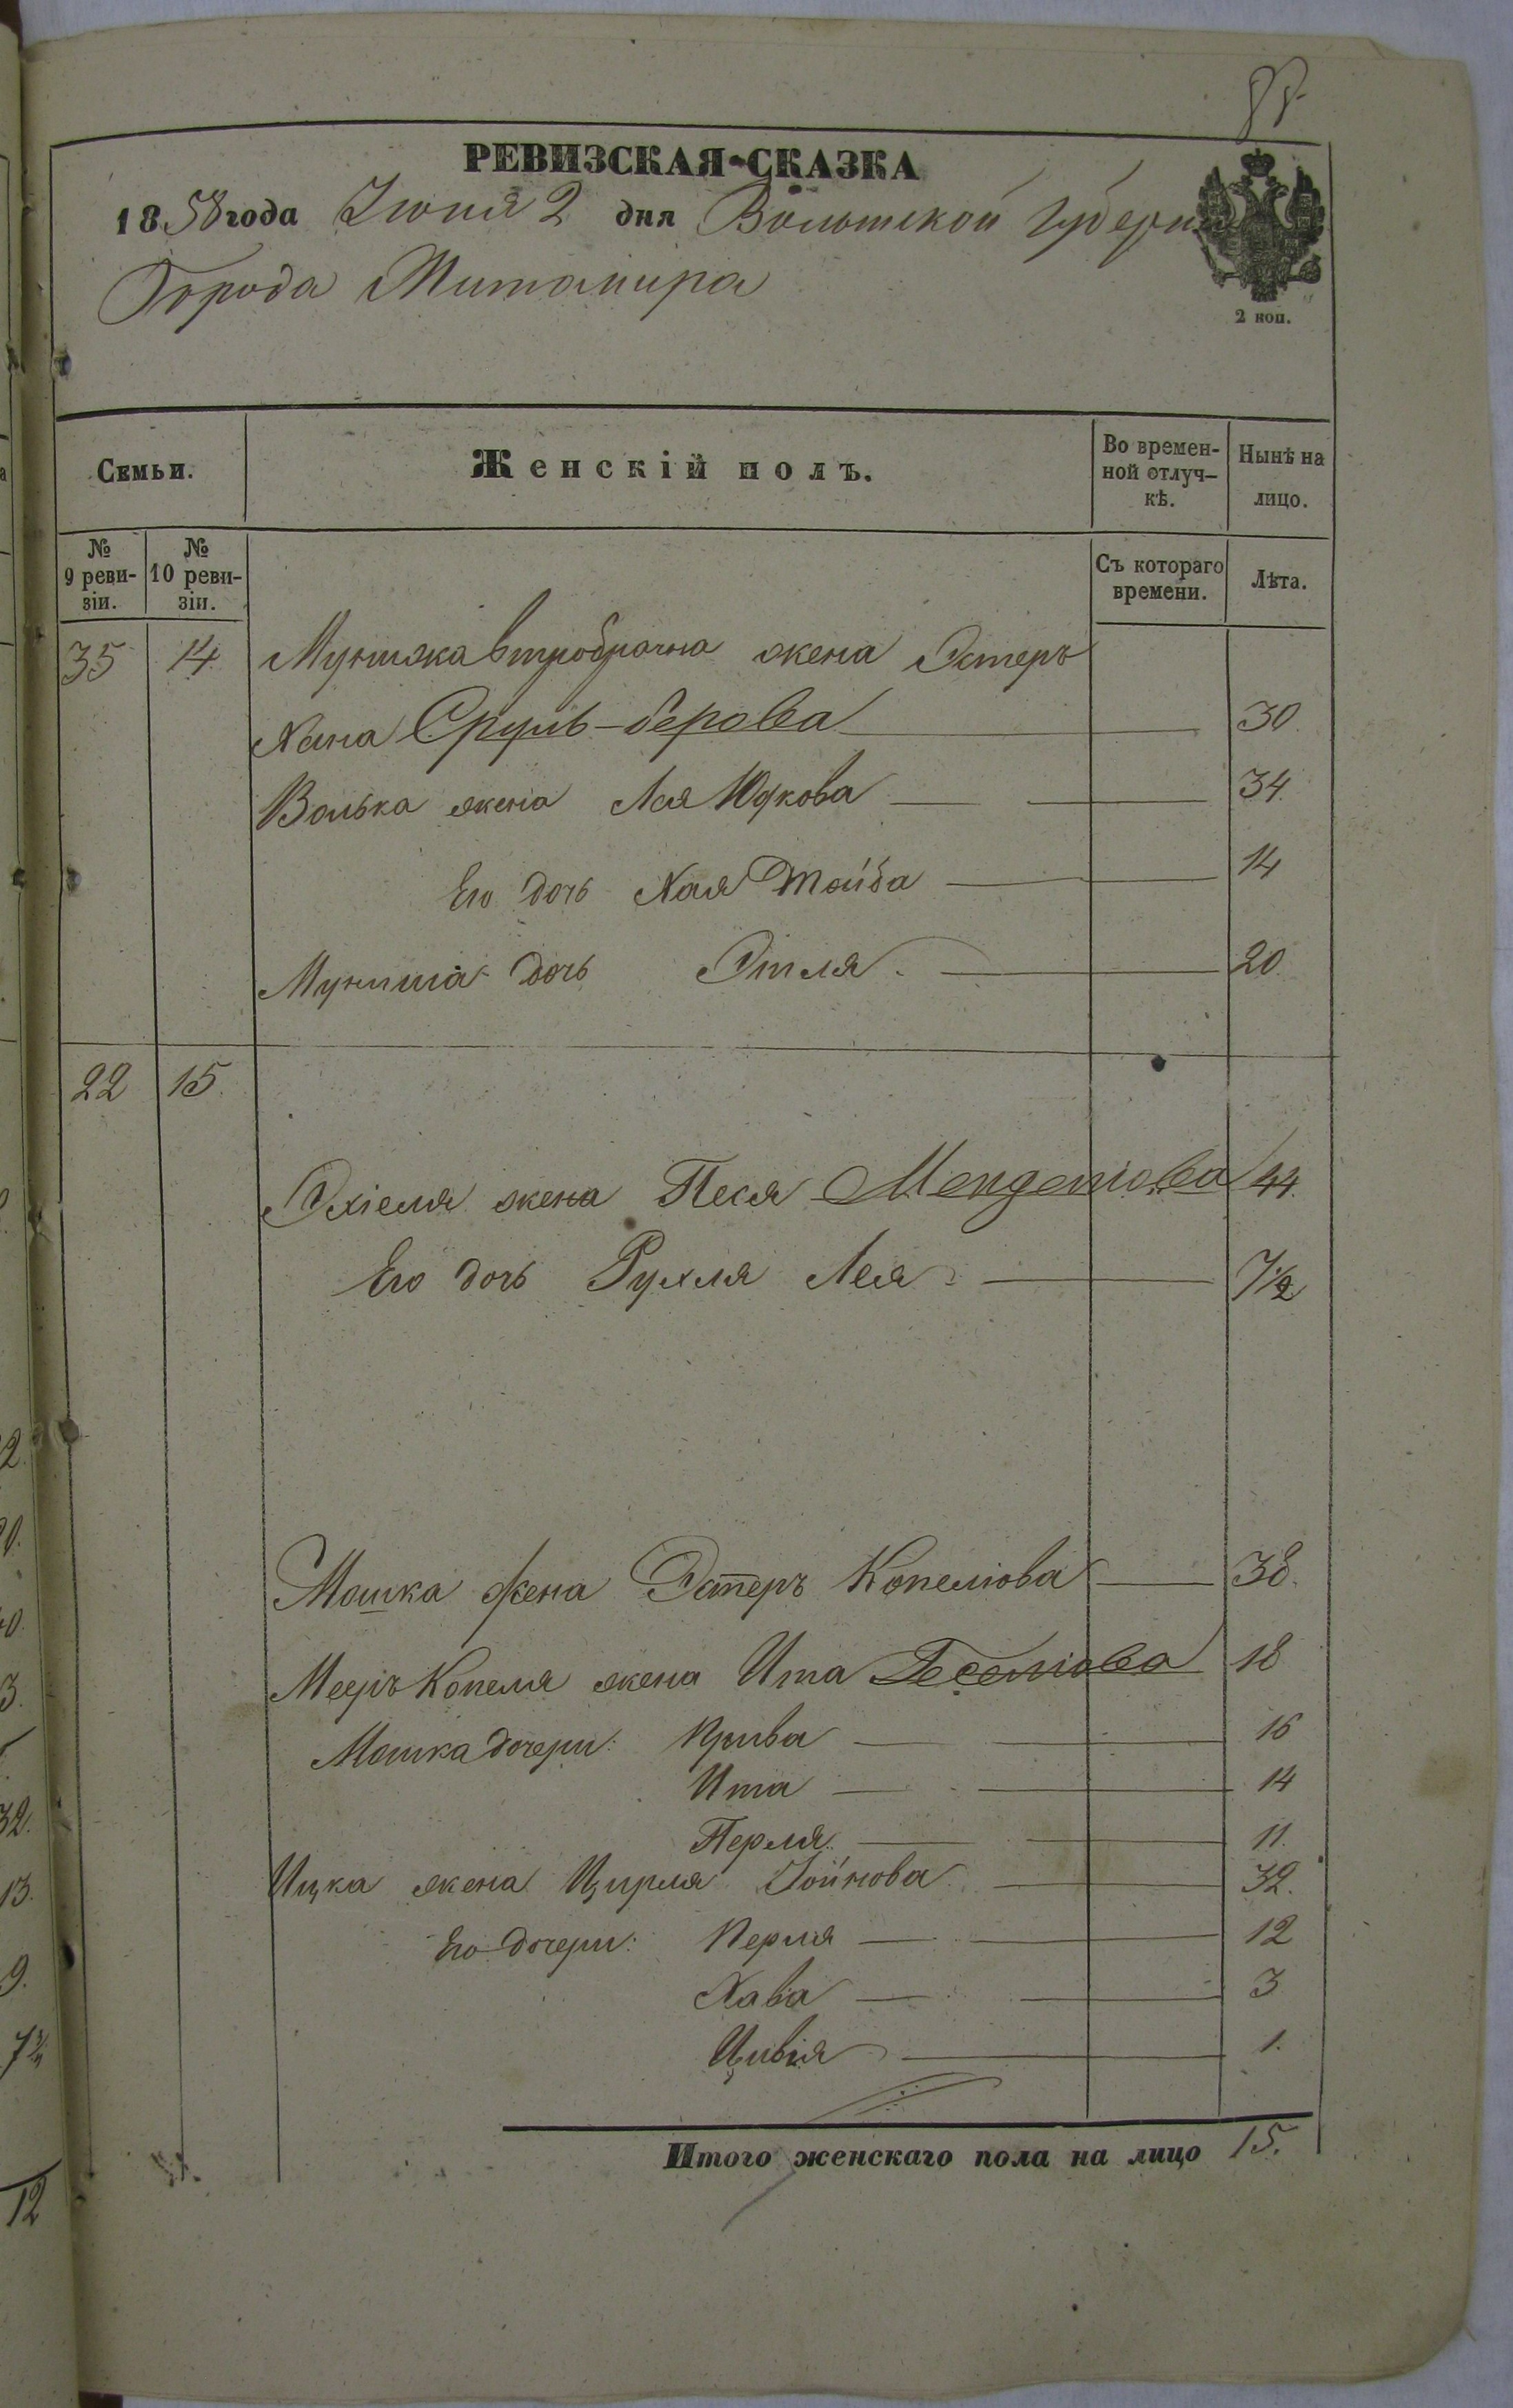 РЕВИЗСКАЯ-СКАЗКА
1858 года Іюня 2 дня Волынской Губерніи
Города Житомира
2 коп.
Семьи. Женскій полъ. Во времен-ной отлуч-кѣ. Нынѣ на лицо.
№ 9 реви-зіи. № 10 реви-зіи. Съ котораго времени. Лѣта.
35 14 Мунишка втробрачна жена Эстеръ
Хана Сруль-берова 30.
Волька жена Лея Юдкова 34.
Его дочь Хая Тойба 14
Муниша дочь Этля 20.
22 15.
Эхіеля жена Песя Менделіова 44.
Его дочь Рухля Лея 7½
Мошка жена Эстеръ Копеліова 38.
Мееръ Копеля жена Ита Геселіова 18
Мошка дочери: Крива 16
Ита 14
Перля 11.
Ицка жена Цирля Іойнова 32.
Его дочери: Перля 12
Хава 3
Цивія 1.
Итого женскаго пола на лицо 15.